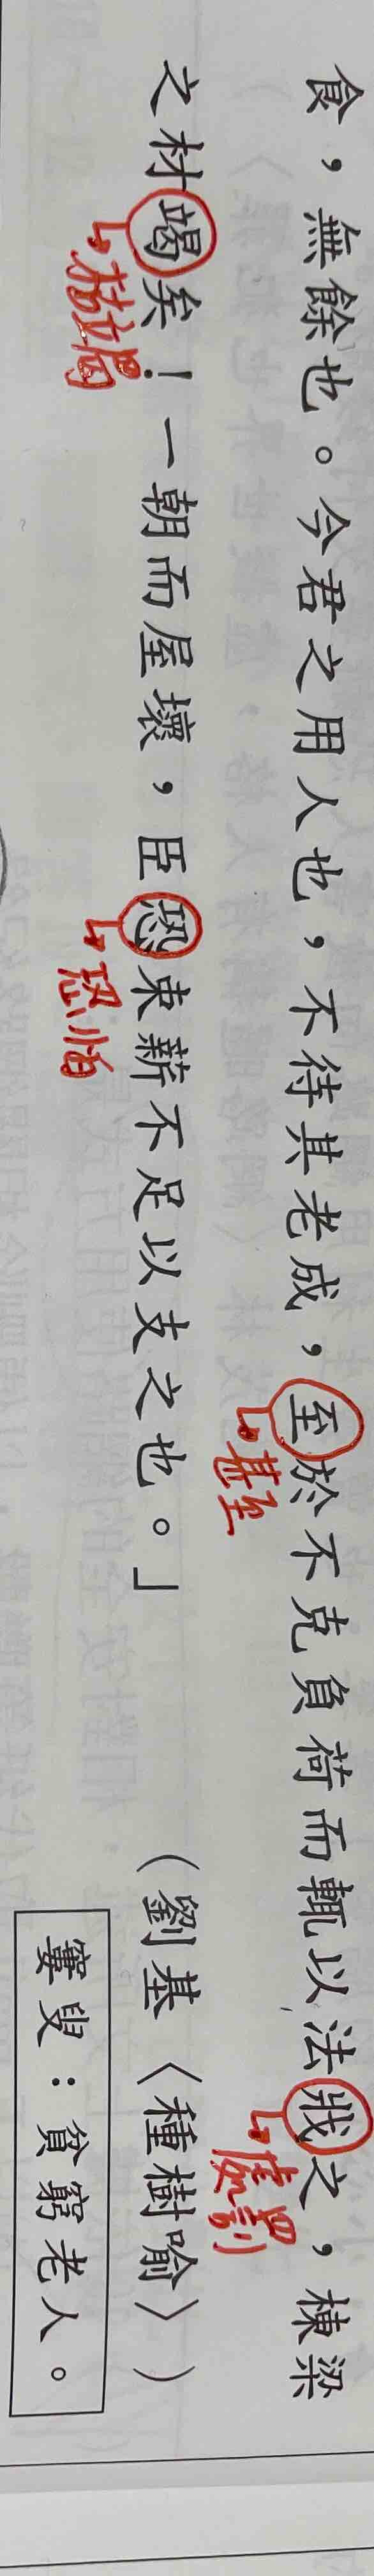 食，無餘也。今君之用人也，不待其老成，至於不克負荷而輒以法戕之，棟梁
甚至
處罰
之材竭矣！一朝而屋壞，臣恐束薪不足以支之也。」（劉基〈種樹喻〉）
枯竭
恐怕
窶叟：貧窮老人。